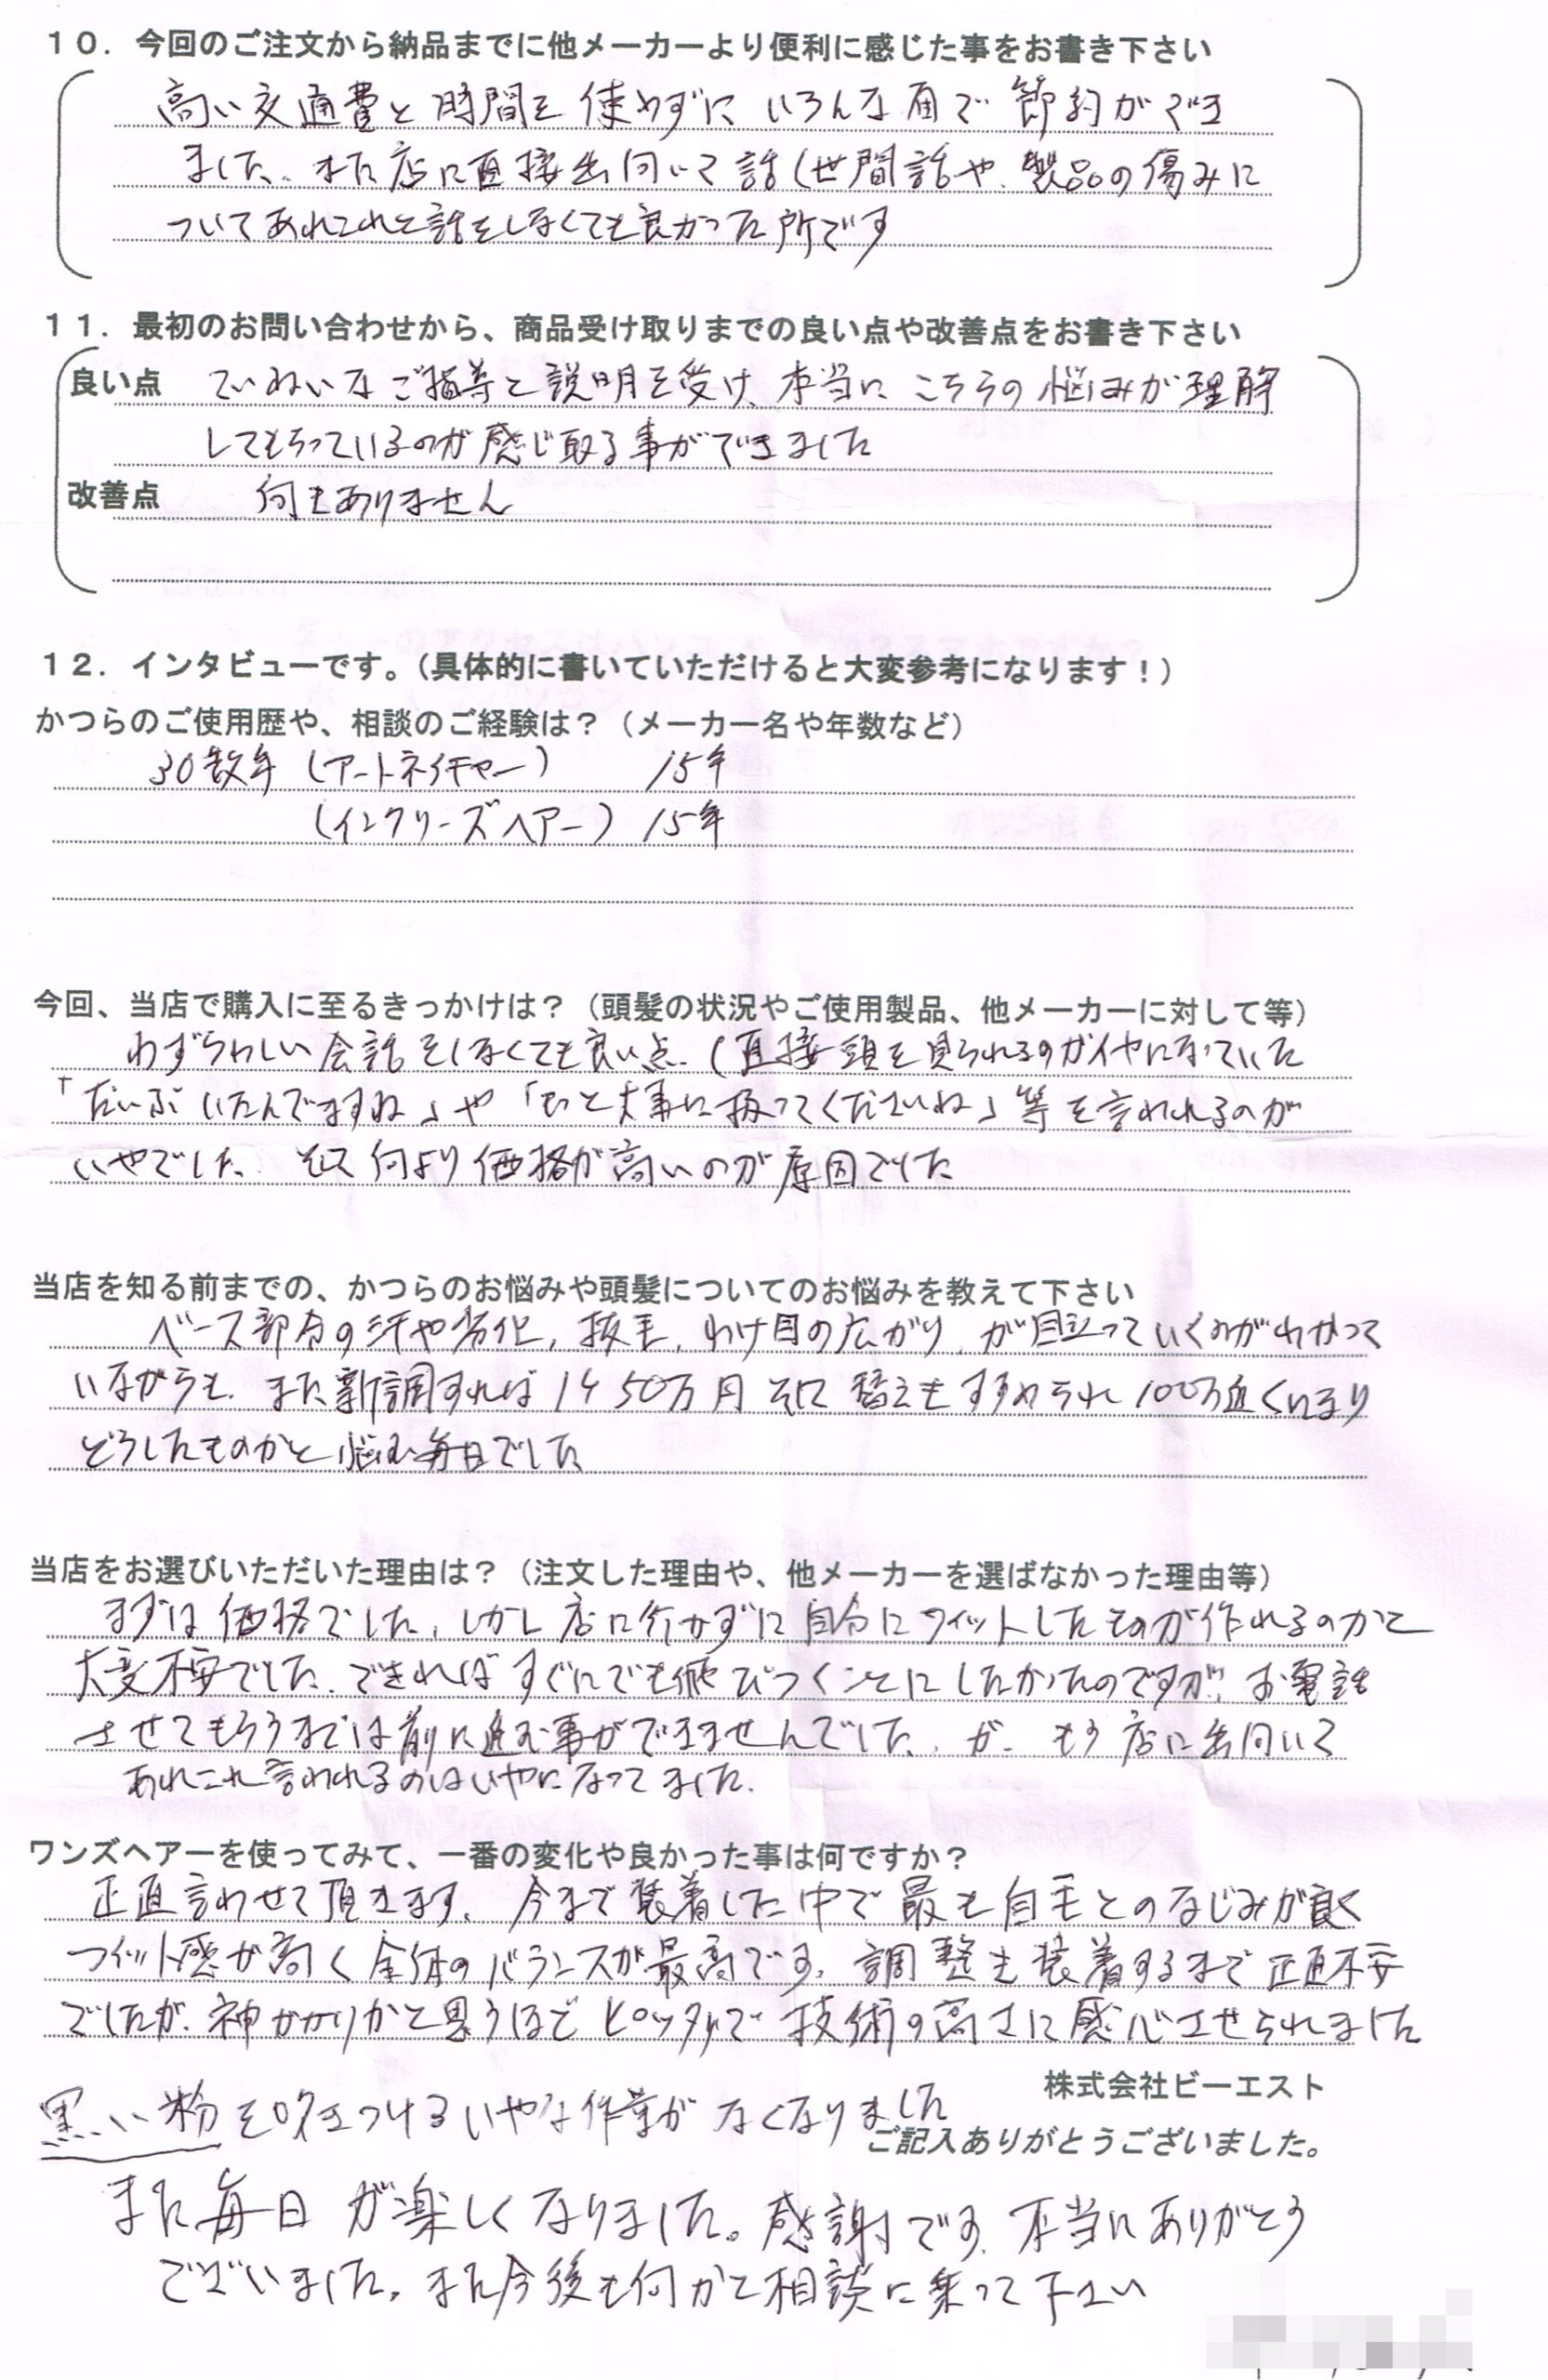 10．今回のご注文から納品までに他メーカーより便利に感じた事をお書き下さい
高い交通費と時間を使わずに いろんな面で 節約ができ
ました、また店に直接出向いて話(世間話や、製品の傷みに
ついてあれこれと話をしなくても良かった所です
11．最初のお問い合わせから、商品受け取りまでの良い点や改善点をお書き下さい
良い点 ていねいなご指導と説明を受け、本当に こちらの 悩みが理解
してもらっているのが感じ取る事ができました
改善点 何もありません
12．インタビューです。（具体的に書いていただけると大変参考になります！）
かつらのご使用歴や、相談のご経験は？（メーカー名や年数など）
30数年 (アートネイチャー) 15年
(インクリーズヘアー) 15年
今回、当店で購入に至るきっかけは？（頭髪の状況やご使用製品、他メーカーに対して等）
わずらわしい会話をしなくても良い点、(直接頭を見られるのがイヤになっていた
「だいぶいたんでますね」や「もっと大事に扱ってくださいね」等を言われるのが
いやでした、そして何より価格が高いのが原因でした
当店を知る前までの、かつらのお悩みや頭髪についてのお悩みを教えて下さい
ベース部分の汗や劣化、抜毛、わけ目の広がり、が目立っていくのがわかって
いながらも、また新調すれば1ケ50万円 そして 替えもすすめられ100万近くにまり
どうしたものかと悩む毎日でした
当店をお選びいただいた理由は？（注文した理由や、他メーカーを選ばなかった理由等）
まずは価格でした、しかし店に行かずに自分にフィットしたものが作れるのかと
大変不安でした、できればすぐにでも飛びつくことにしたかったのですが、お電話
させてもらうまでは前に進む事ができませんでした、が、もう店に出向いて
あれこれ言われるのはいやになってました、
ワンズヘアーを使ってみて、一番の変化や良かった事は何ですか？
正直言わせて頂きます、今まで装着した中で最も自毛とのなじみが良く
フィット感が高く全体のバランスが最高です、調整も装着するまで正直不安
でしたが、神がかりかと思うほどピッタリで技術の高さに感心させられました
株式会社ビーエスト
黒い粉を吹きつけるいやな作業がなくなりました
ご記入ありがとうございました。
また毎日が楽しくなりました。感謝です、本当にありがとう
ございました、また今後も何かと相談に乗って下さい